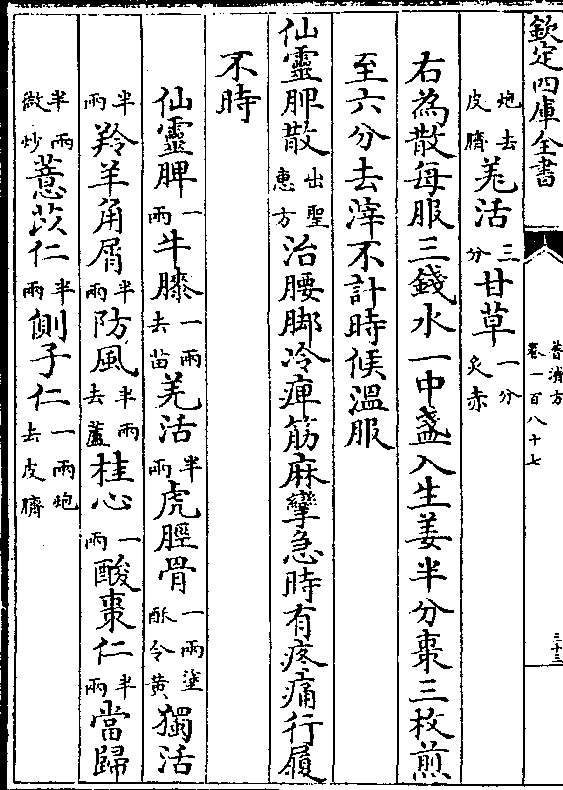 欽定四庫全書
普濟方
卷一百八十七
三十三
炮去皮臍羌活三分甘草一分炙赤
右為散每服三錢水一中盞入生姜半分棗三枚煎
至六分去滓不計時候溫服
仙靈脾散出聖惠方治腰脚冷痺筋麻攣急時有疼痛行履
不時
仙靈脾一兩牛膝一兩去苗羌活半兩虎脛骨一兩塗酥令黄獨活
半兩羚羊角屑半兩防風半兩去蘆桂心一兩酸棗仁半兩當歸
半兩微炒薏苡仁半兩側子仁一兩炮去皮臍